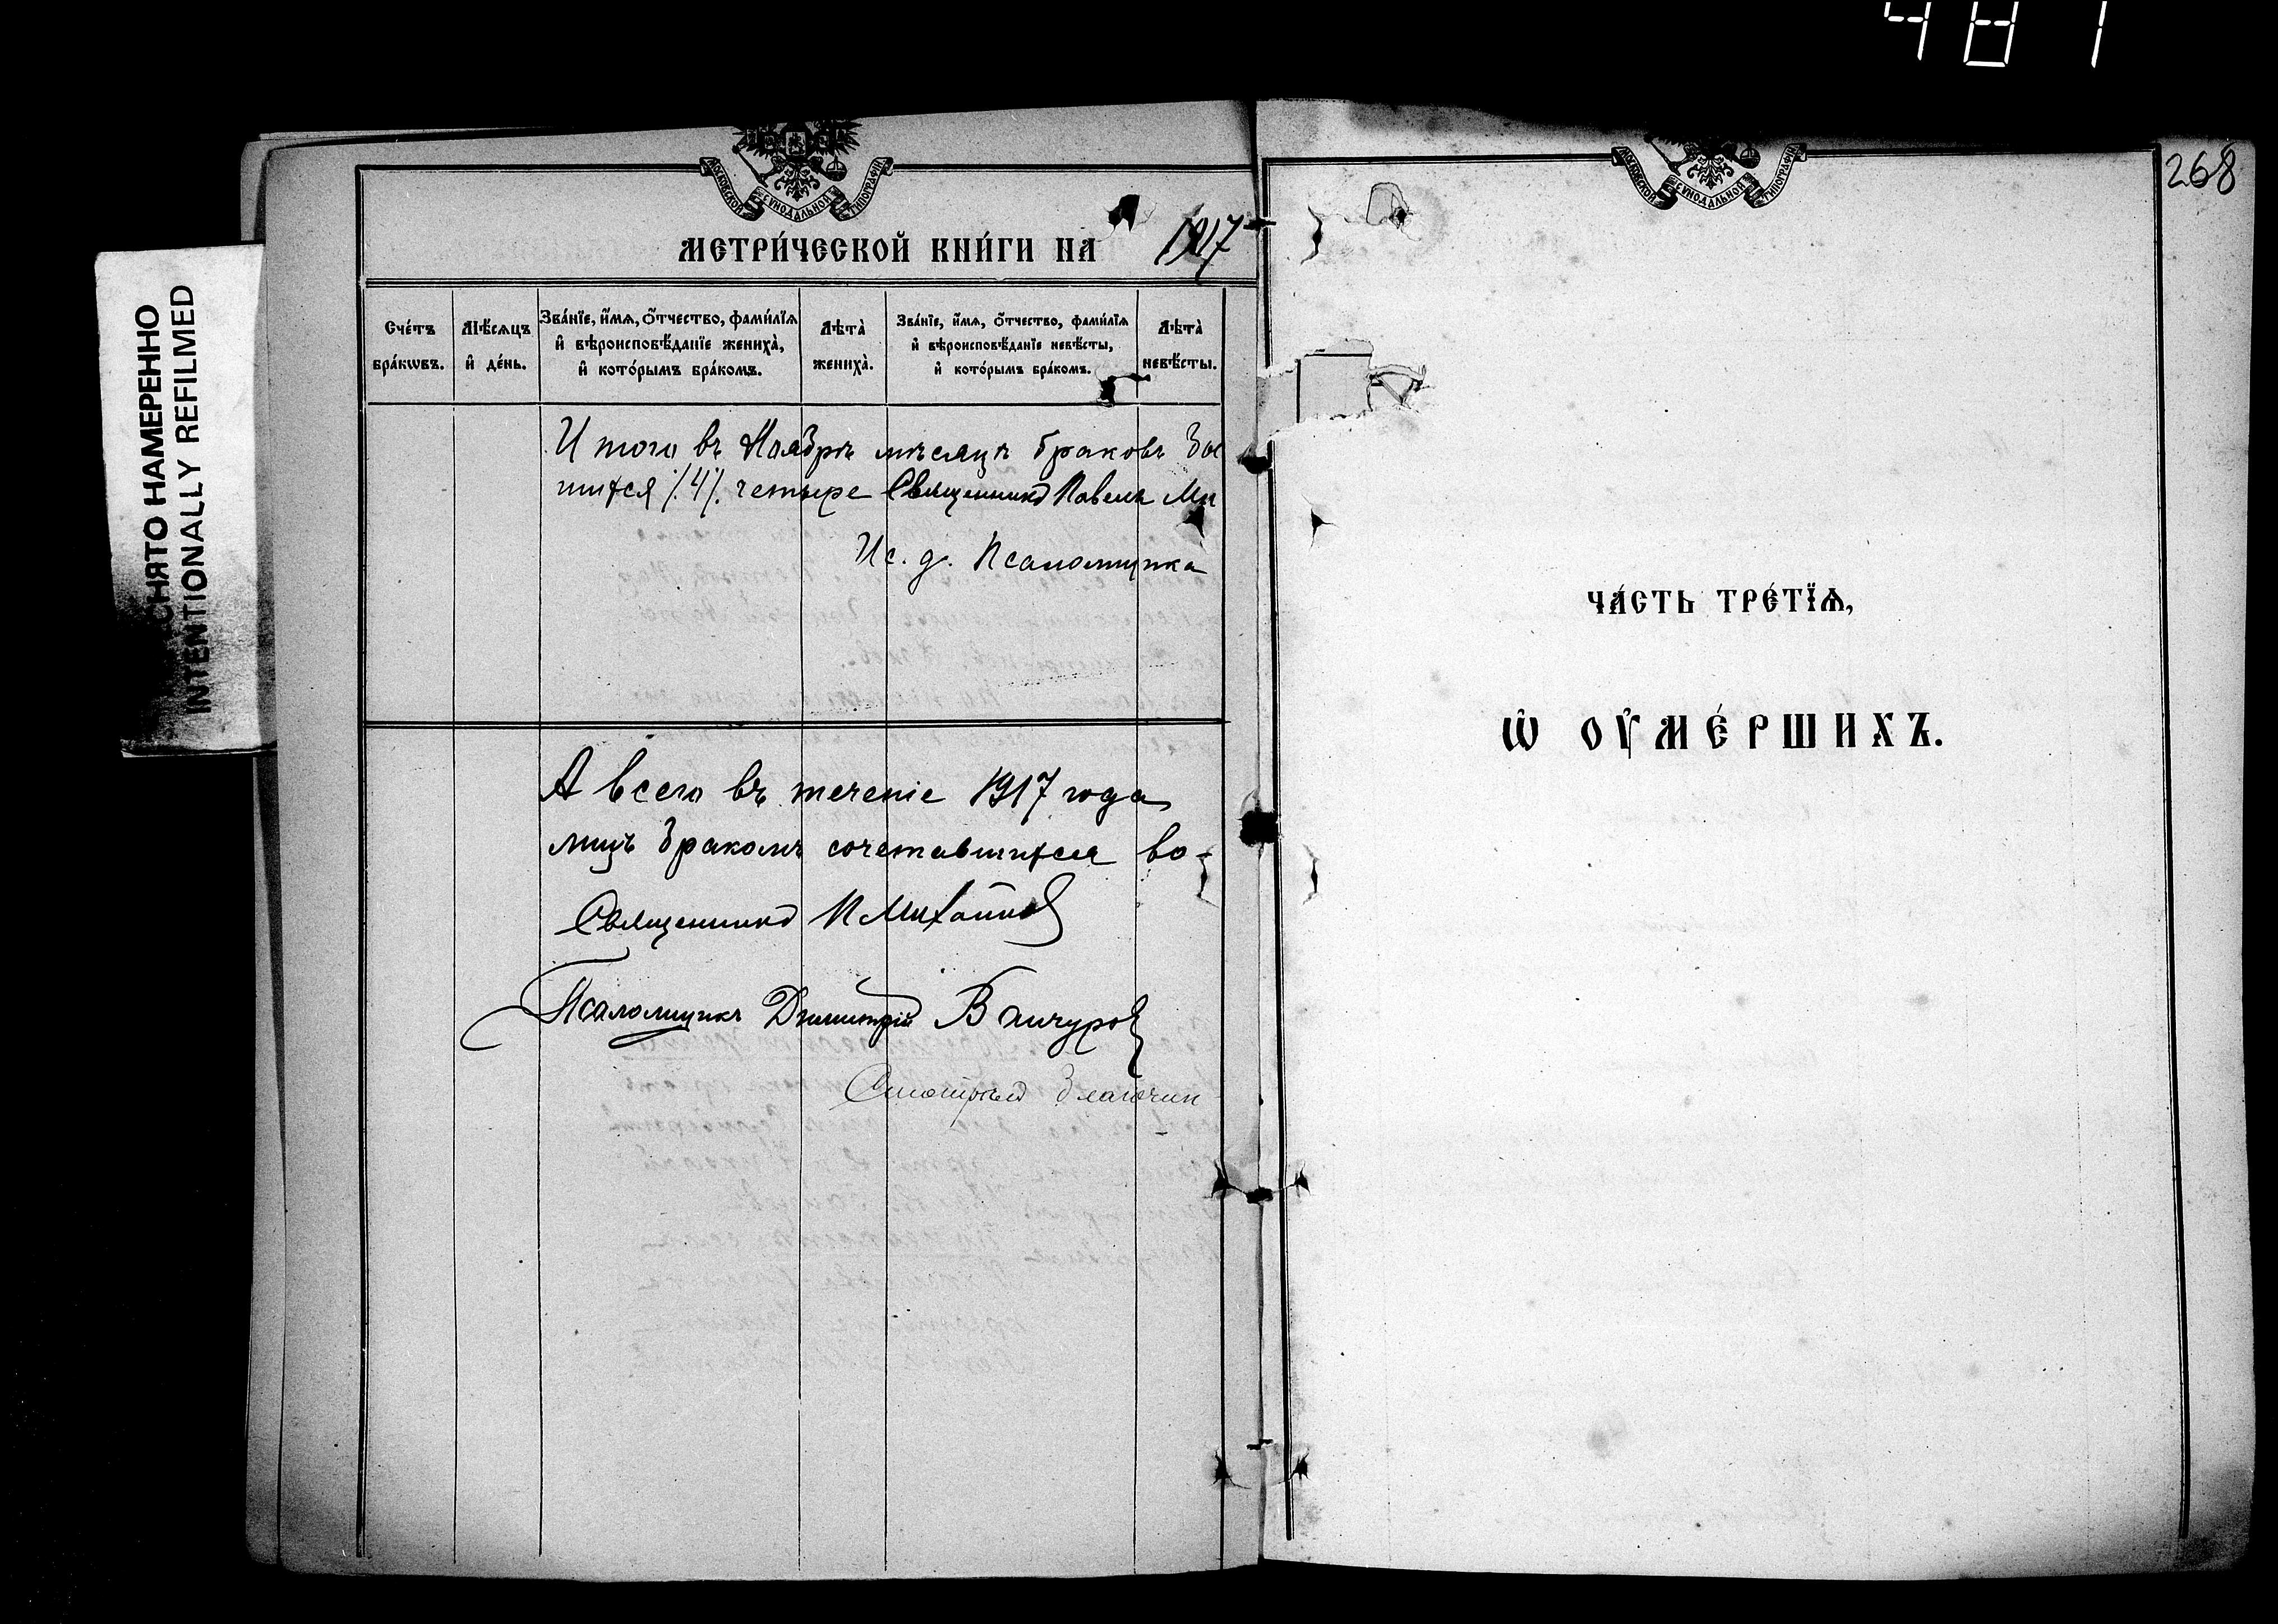 481
268
СНЯТО НАМЕРЕННО
INTENTIONALLY REFILMED
МОСКОВСКОЙ СѴНОДАЛЬНОЙ ТИПОГРАФІИ
МЕТРИ́ЧЕСКОЙ КНИ́ГИ НА 1917
Сче́тъ бра́кѡвъ.
Мѣ́сѧцъ и҆ де́нь.
Зва́нїе, и҆́мѧ, ѻ҆́тчество, фамѝлїѧ и҆ вѣроисповѣ́данїе жениха̀, и҆ кото́рымъ бра́комъ.
Лѣта̀ жениха̀.
Зва́нїе, и҆́мѧ, ѻ҆́тчество, фамѝлїѧ и҆ вѣроисповѣ́данїе невѣ́сты, и҆ кото́рымъ бра́комъ.
Лѣта̀ невѣ́сты.
Итого въ Ноябрѣ мѣсяцѣ браковъ
шихся /4/ четыре Священникъ Павелъ Ми
Ис. д. Псаломщика
А всего въ теченіе 1917 года
лицъ бракомъ сочетавшихся во-
Священникъ П Михайлов
Псаломщикъ Димитрій
Смотрѣлъ благочин
МОСКОВСКОЙ СѴНОДАЛЬНОЙ ТИПОГРАФІИ
ЧА́СТЬ ТРЕ́ТЇѦ,
Ѡ҆ ОУ҆МЕ́РШИХЪ.